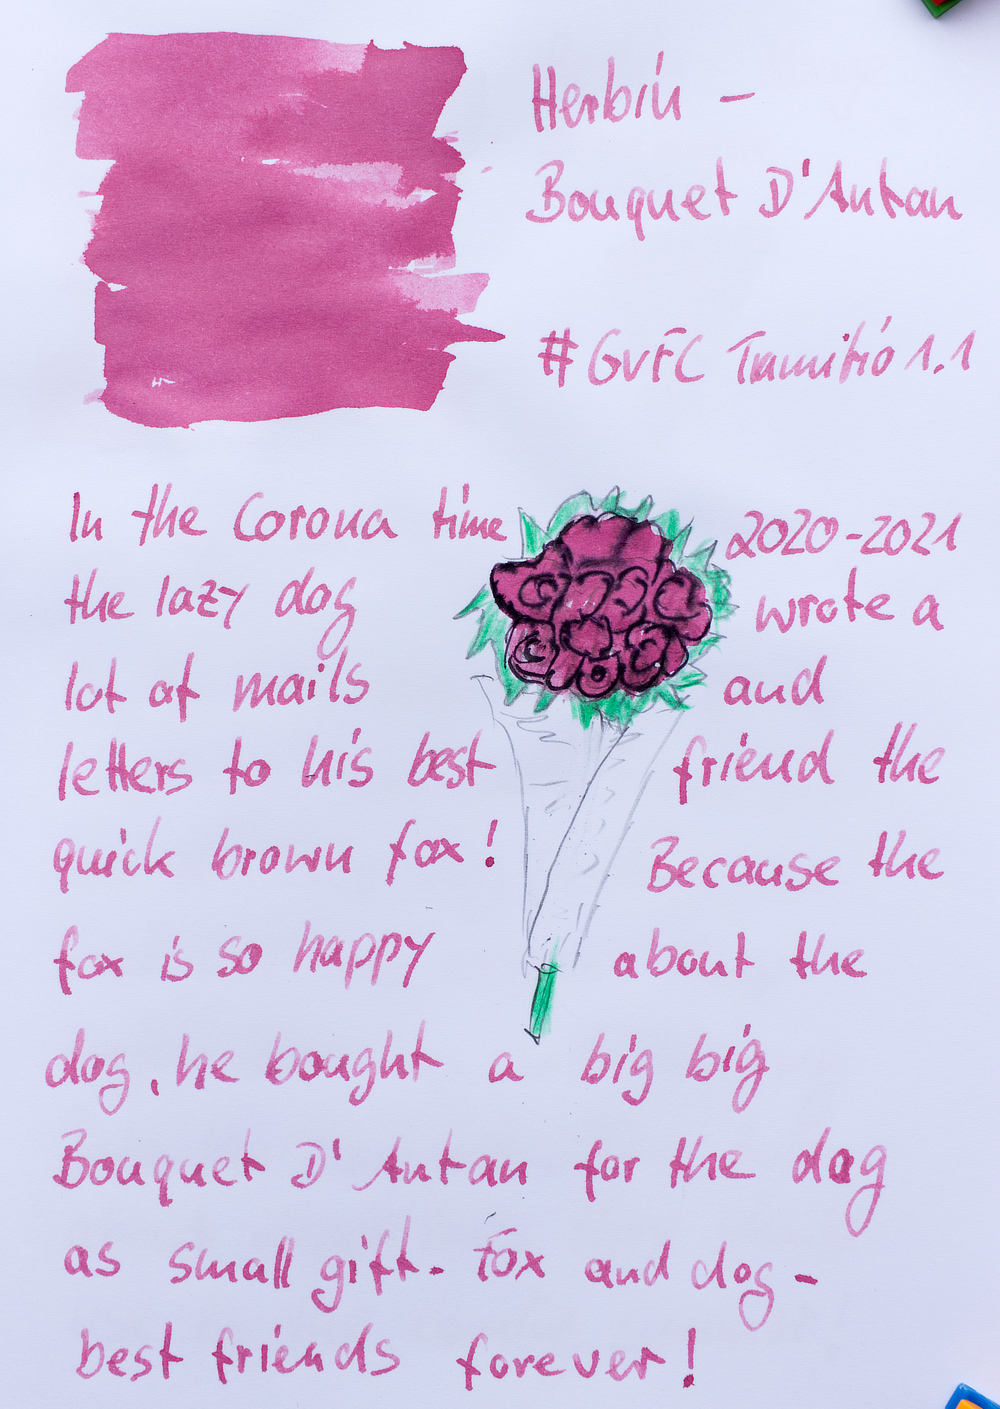 Herbin -
Bouquet D'Antan
#GvFC Tamitio 1.1
In the Corona time 2020-2021
the lazy dog wrote a
lot of mails and
letters to his best friend the
quick brown fox! Because the
fox is so happy about the
dog, he bought a big big
Bouquet D'Antan for the dog
as small gift. Fox and dog -
best friends forever!